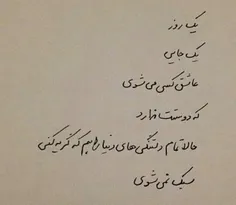 یک روز
یک جایی
عاشق کسی می شوی
که دوستت ندارد
حالا تمام دلتنگی های دنیا را هم که گریه کنی
سبک نمی شوی